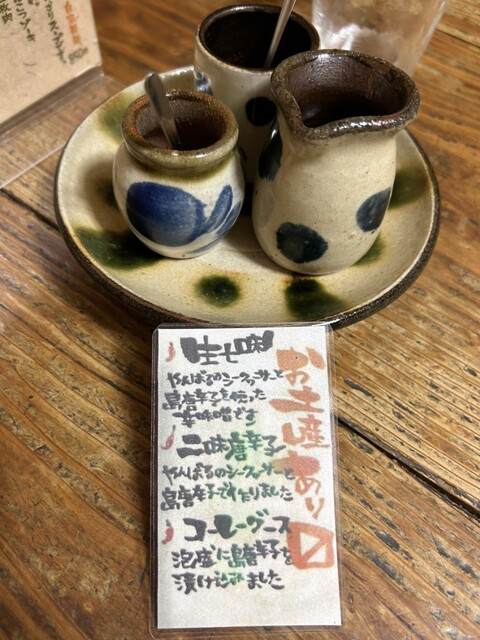 生七味
やんばるのシークヮーサーと
島唐辛子を使った
辛味噌です
二味唐辛子
やんばるのシークヮーサーと
島唐辛子で作りました
コーレーグース
泡盛に島唐辛子を
漬け込みました
お土産あり